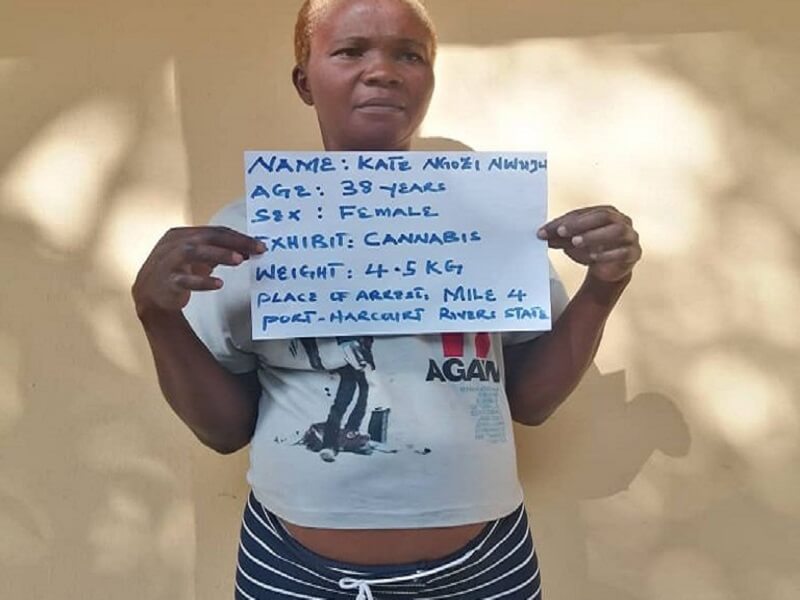 NAME: KATE NGOZI NWUJU
AGE: 38 YEARS
SEX: FEMALE
EXHIBIT: CANNABIS
WEIGHT: 4.5 KG
PLACE OF ARREST: MILE 4
PORT-HARCOURT RIVERS STATE
AGAIN